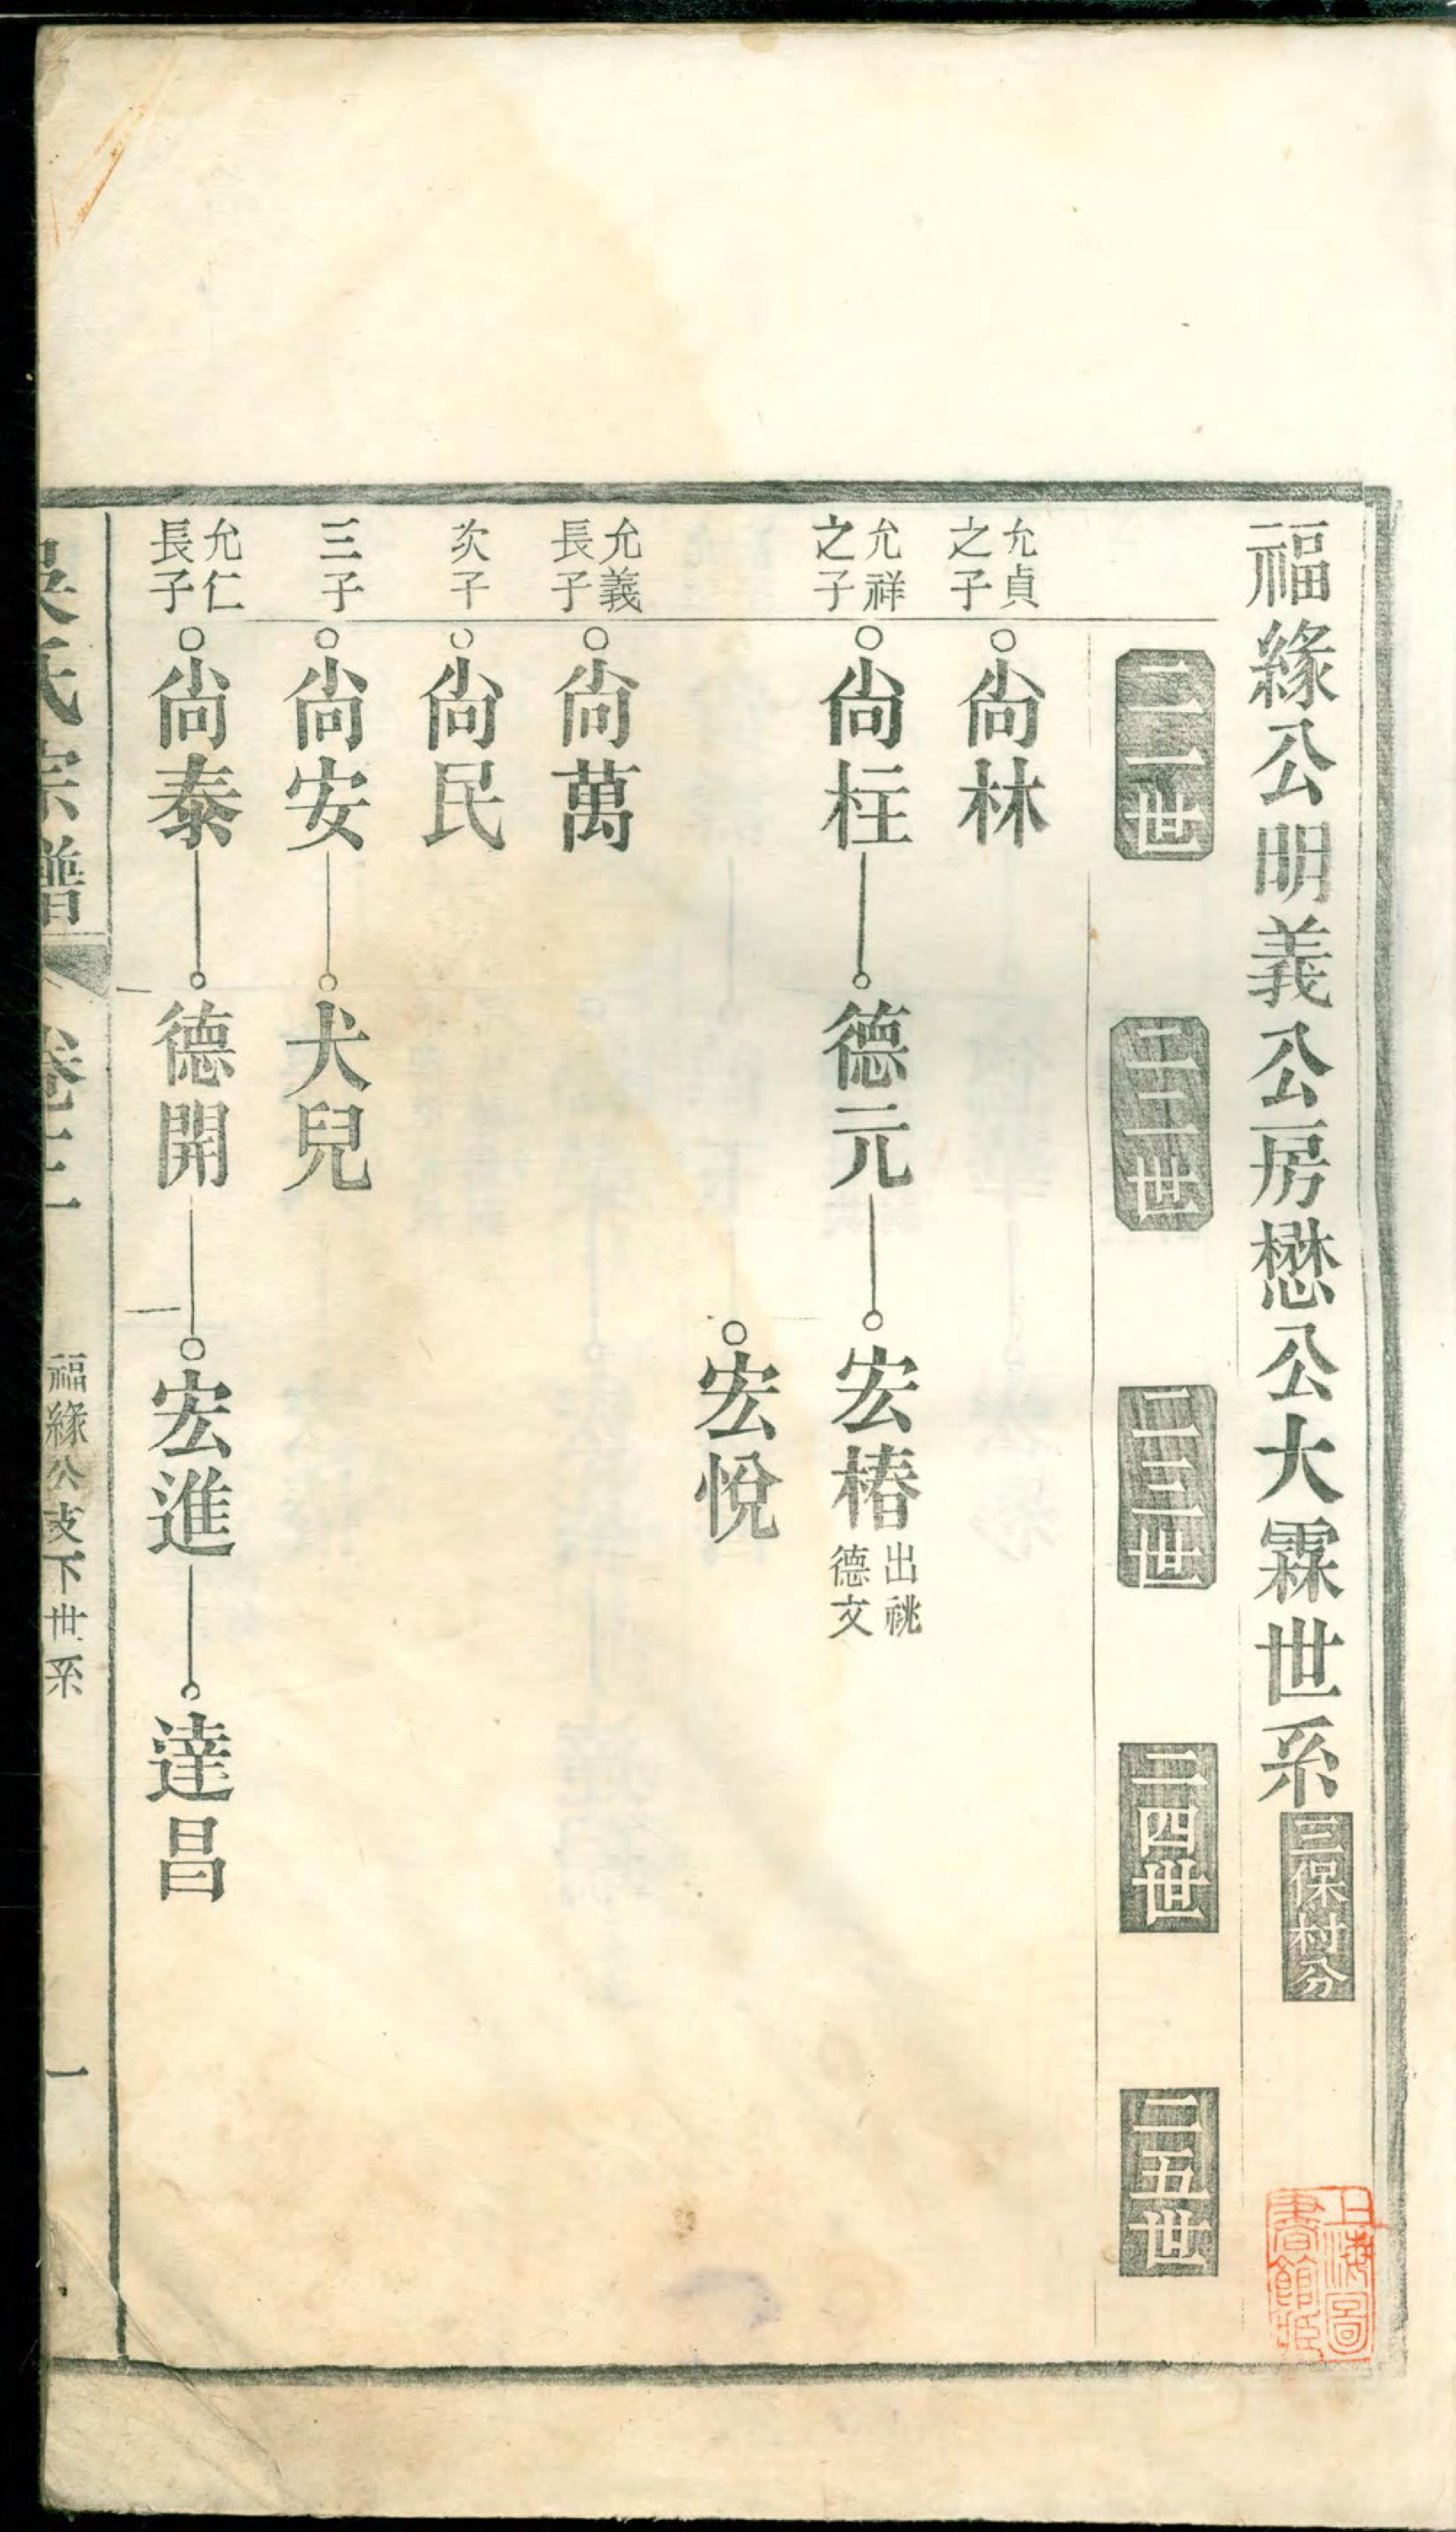 福緣公明義公房懋公大霖世系 三保村分
二一世 二二世 二三世 二四世 二五世
允貞之子 尙林
允祥之子 尙柱 德元 宏椿 出祧德文
宏悅
允義長子 尙萬
次子 尙民
三子 尙安 犬兒
允仁長子 尙泰 德開 宏進 達昌
吳氏宗譜 卷三 福緣公支下世系 一
上海圖書館藏